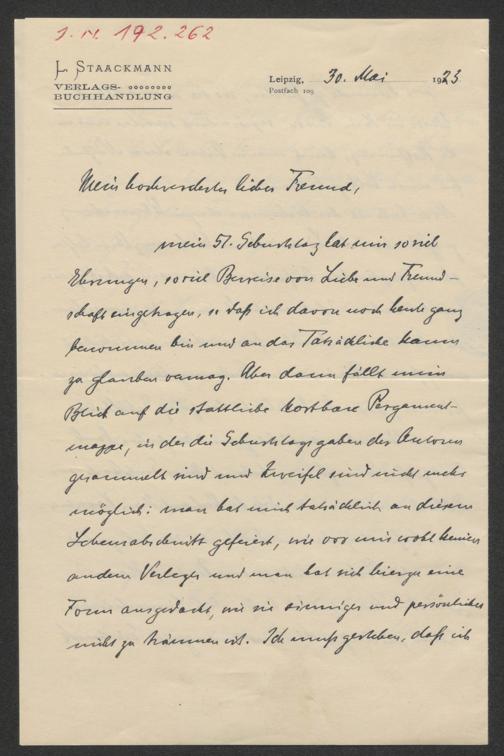 J. N. 192.262
L. STAACKMANN
VERLAGS-
BUCHHANDLUNG
Leipzig, 30. Mai 1923
Postfach 109
Mein hochverehrter lieber Freund,
mein 51. Geburtstag hat mir soviel
Ehrungen, soviel Beweise von Liebe und Freund-
schaft eingetragen, so daß ich davon noch heute ganz
benommen bin und an das Tatsächliche kaum
zu glauben vermag. Aber dann fällt mein
Blick auf die stattliche kostbare Pergament-
mappe, in der die Geburtstagsgaben der Autoren
gesammelt sind und Zweifel sind nicht mehr
möglich: man hat mich tatsächlich an diesem
Lebensabschnitt gefeiert, wie vor mir wohl keinen
andern Verleger und man hat sich hierzu eine
Form ausgedacht, wie sie sinniger und persönlicher
nicht zu träumen ist. Ich muß gestehen, daß ich